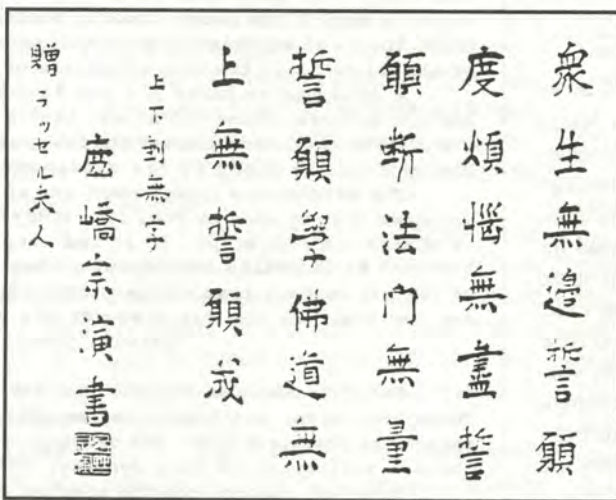 衆生無邊誓願
度煩惱無盡誓
願断法門無量
誓願學佛道無
上無誓願成
上下無字
鹿嶠宗演書
贈ラツセル夫人